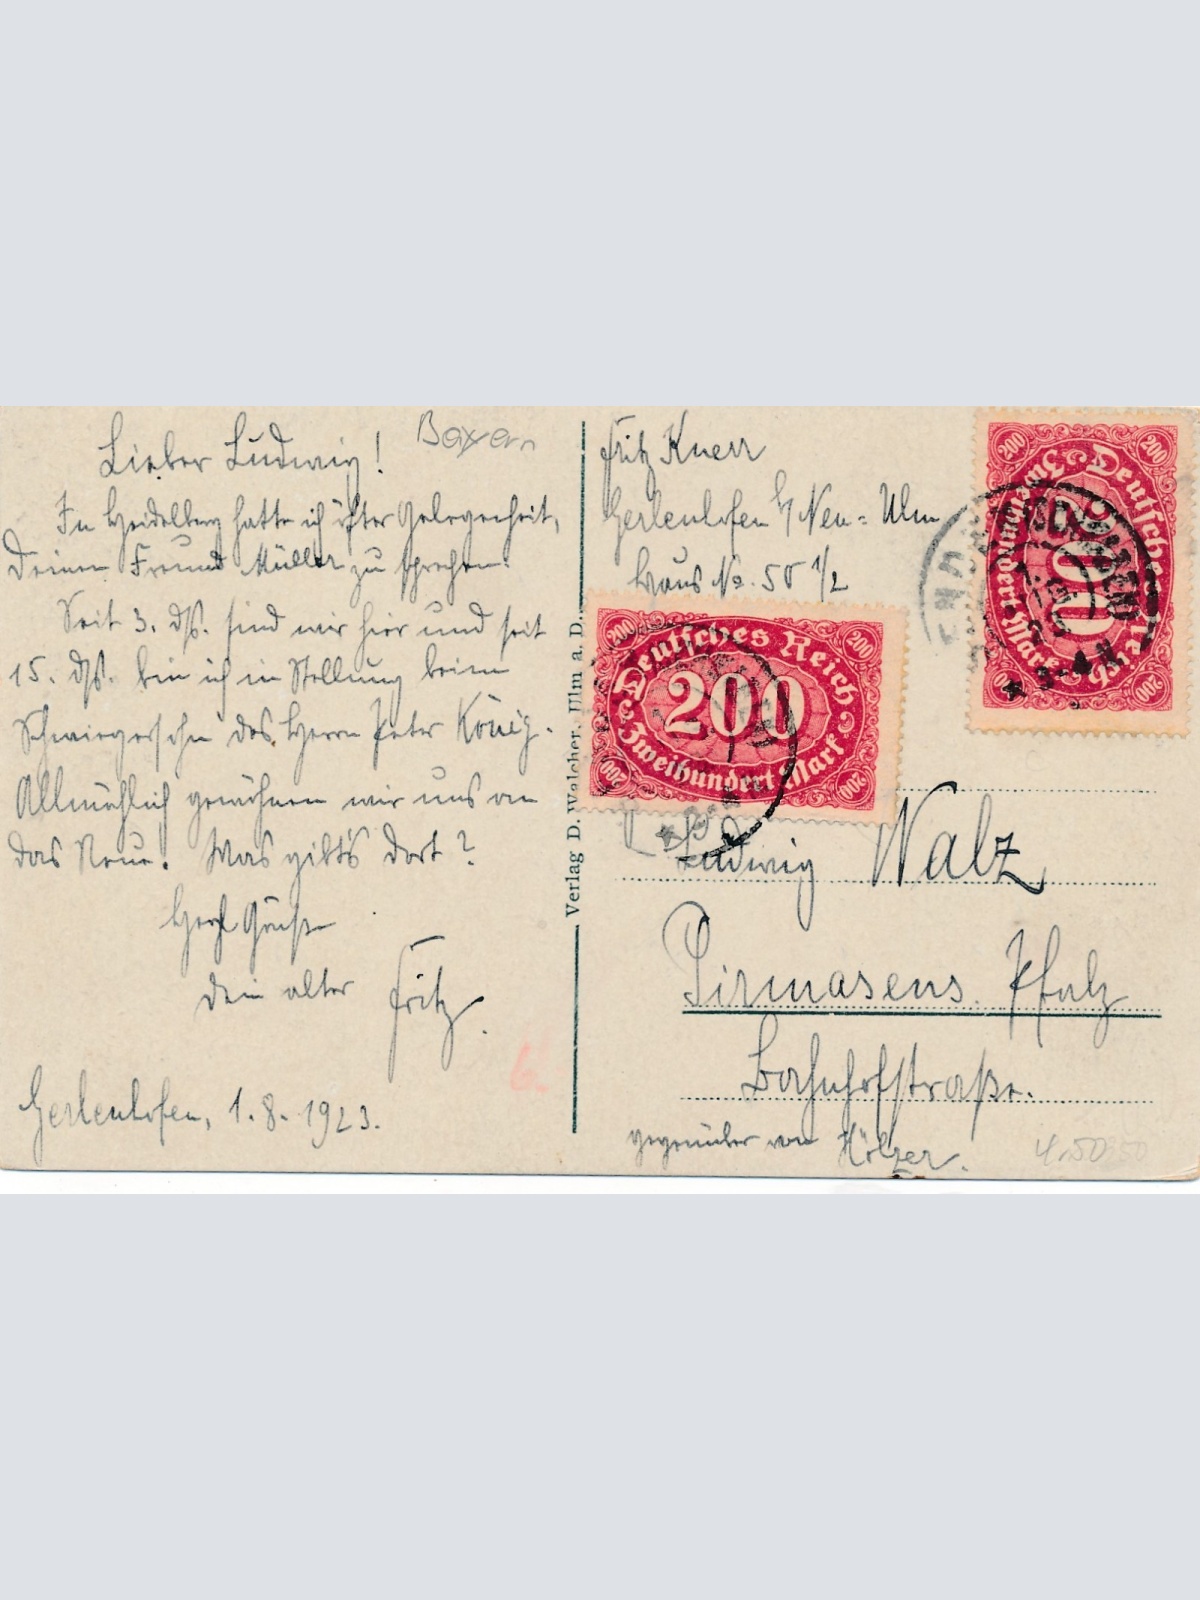 Lieber Ludwig!
Bayern
In Heidelberg hatte ich öfter Gelegenheit,
Deinen Freund Müller zu sprechen.
Seit 3. ds. sind wir hier und seit
15. ds. bin ich in Stellung beim
Schwiegersohn des Herrn Peter König.
Allmählich gewöhnen wir uns an
das Neue. Was gibt's dort?
Herzl. Grüße
Dein alter Fritz.
Gerlenhofen, 1.8.1923.
Verlag D. Walcher, Ulm a. D.
Fritz Knerr
Gerlenhofen b/ Neu-Ulm
Haus No. 50 1/2
200 200
Deutsches Reich
200
Zweihundert Mark
200 200
200 200
Deutsches Reich
200
Zweihundert Mark
200 200
Ludwig Walz
Pirmasens. Pfalz
Bahnhofstraße.
gegenüber von Hölzer.
4.50